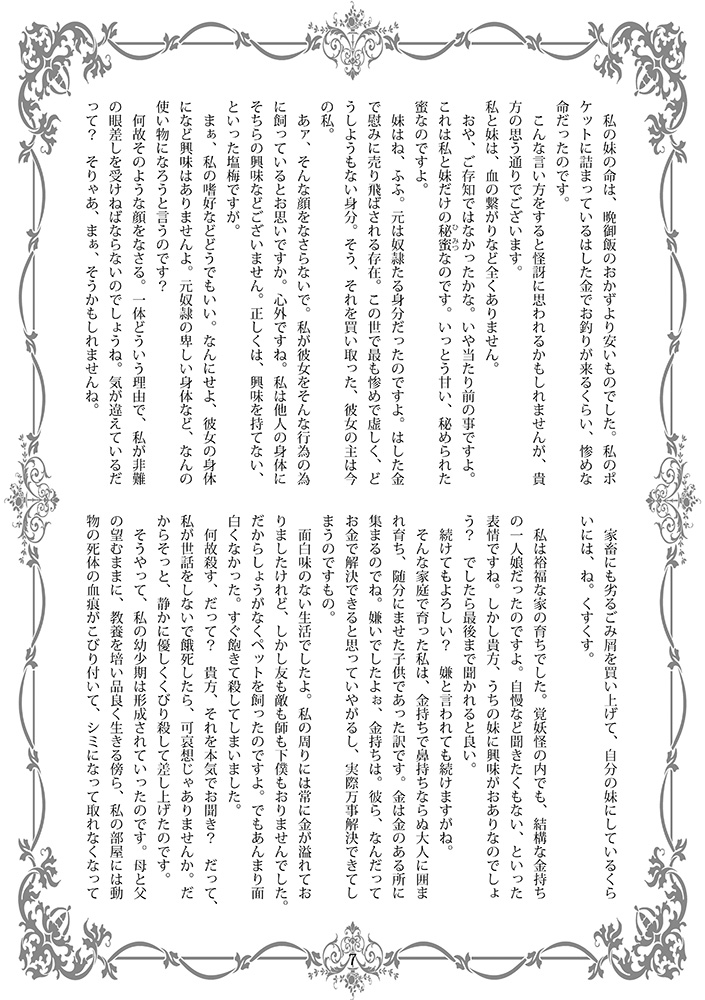 私の妹の命は、晩御飯のおかずより安いものでした。私のポ
ケットに詰まっているはした金でお釣りが来るくらい、惨めな
命だったのです。
　こんな言い方をすると怪訝に思われるかもしれませんが、貴
方の思う通りでございます。
　私と妹は、血の繋がりなど全くありません。
　おや、ご存知ではなかったかな。いや当たり前の事ですよ。
これは私と妹だけの秘蜜なのです。いっとう甘い、秘められた
ひみつ
蜜なのですよ。
　妹はね、ふふ。元は奴隷たる身分だったのですよ。はした金
で慰みに売り飛ばされる存在。この世で最も惨めで虚しく、ど
うしようもない身分。そう、それを買い取った、彼女の主は今
の私。
　あァ、そんな顔をなさらないで。私が彼女をそんな行為の為
に飼っているとお思いですか。心外ですね。私は他人の身体に
そちらの興味などございません。正しくは、興味を持てない、
といった塩梅ですが。
　まぁ、私の嗜好などどうでもいい。なんにせよ、彼女の身体
になど興味はありませんよ。元奴隷の卑しい身体など、なんの
使い物になろうと言うのです？
　何故そのような顔をなさる。一体どういう理由で、私が非難
の眼差しを受けねばならないのでしょうね。気が違えているだ
って？　そりゃあ、まぁ、そうかもしれませんね。
　家畜にも劣るごみ屑を買い上げて、自分の妹にしているくら
いには、ね。くすくす。
　私は裕福な家の育ちでした。覚妖怪の内でも、結構な金持ち
の一人娘だったのですよ。自慢など聞きたくもない、といった
表情ですね。しかし貴方、うちの妹に興味がおありなのでしょ
う？　でしたら最後まで聞かれると良い。
　続けてもよろしい？　嫌と言われても続けますがね。
　そんな家庭で育った私は、金持ちで鼻持ちならぬ大人に囲ま
れ育ち、随分にませた子供であった訳です。金は金のある所に
集まるのでね。嫌いでしたよぉ、金持ちは。彼ら、なんだって
お金で解決できると思っていやがるし、実際万事解決できてし
まうのですもの。
　面白味のない生活でしたよ。私の周りには常に金が溢れてお
りましたけれど、しかし友も敵も師も下僕もおりませんでした。
だからしょうがなくペットを飼ったのですよ。でもあんまり面
白くなかった。すぐ飽きて殺してしまいました。
　何故殺す、だって？　貴方、それを本気でお聞き？　だって、
私が世話をしないで餓死したら、可哀想じゃありませんか。だ
からそっと、静かに優しくくびり殺して差し上げたのです。
　そうやって、私の幼少期は形成されていったのです。母と父
の望むままに、教養を培い品良く生きる傍ら、私の部屋には動
物の死体の血痕がこびり付いて、シミになって取れなくなって
7